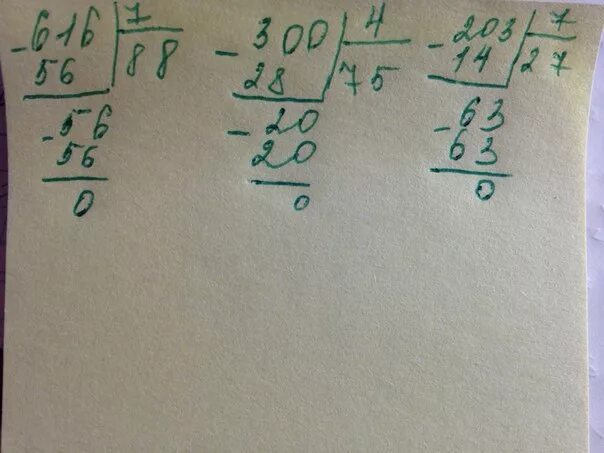 -616 | 7
56 | 88
-56
56
0
-300 | 4
28 | 75
-20
20
0
-203 | 7
14 | 27
-63
63
0